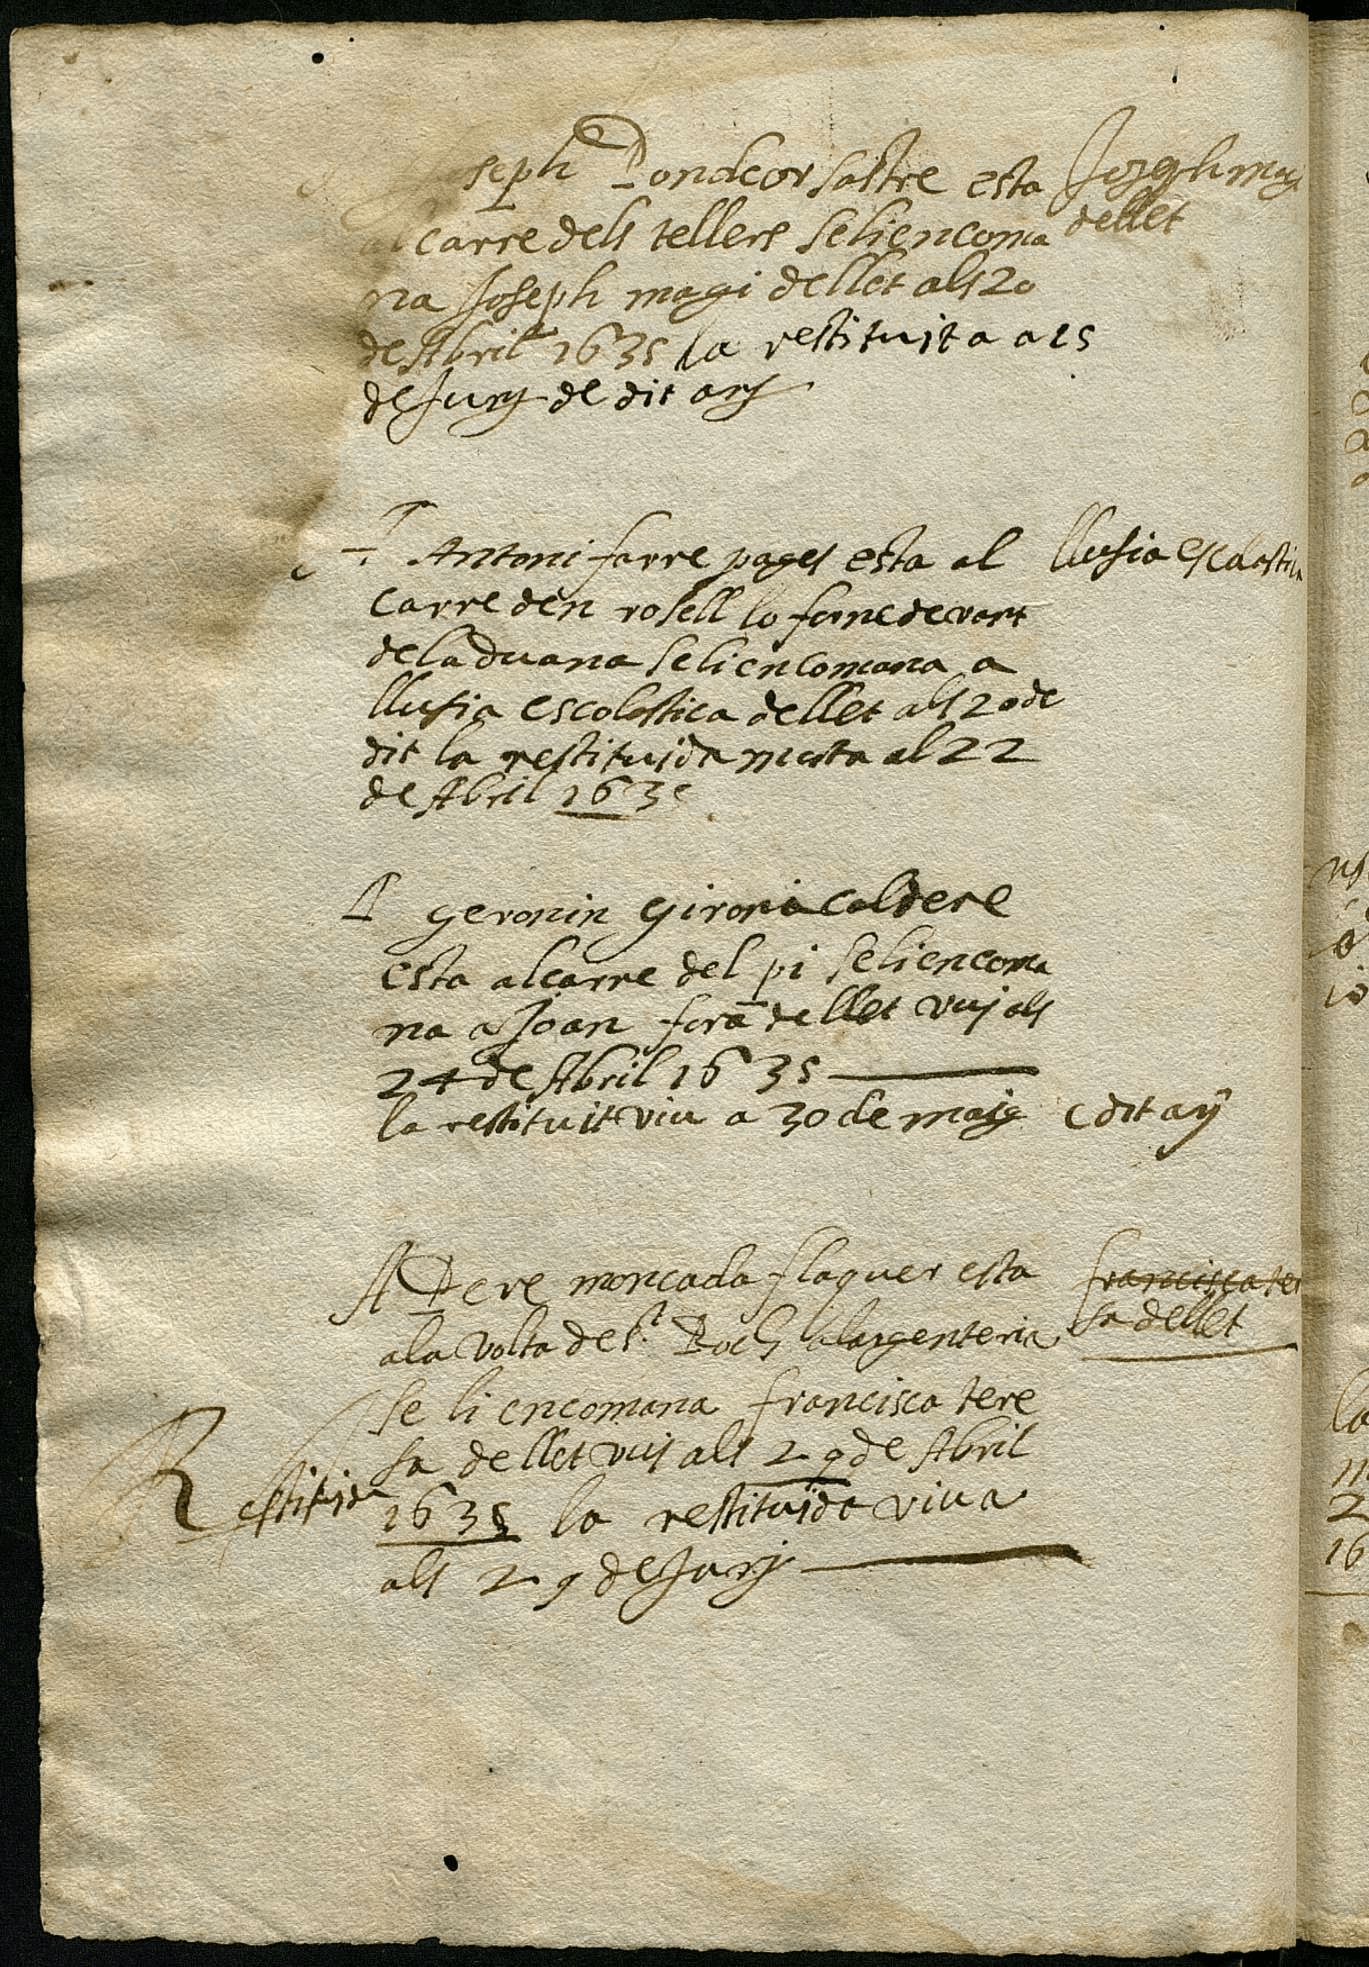 seph Pondeor sastre esta
carre dels tellers se li encoma
na Joseph magi dellet als 20
de Abril 1635 la restituit a a 15
de Juny de dit any
Joseph magi
dellet
A Antoni farre pages esta al
carre den rosell lo forn de vora
de la Duana se li encomana a
llusia escolastica dellet als 20 de
dit la restituida morta al 22
de Abril 1635
llusia escolastica
A geronin girona caldere
esta al carre del pi se li encoma
na a Joan dellet vuj als
24 de Abril 1635
la restituit viu a 30 de maig
dit any
A Pere moncada flaquer esta
a la volta de St. Roch a largenteria
se li encomana francisca tere
sa dellet vuj als 29 de Abril
1635 la restituida viua
als 29 de Juny
francisca ter
sa dellet
Restituida